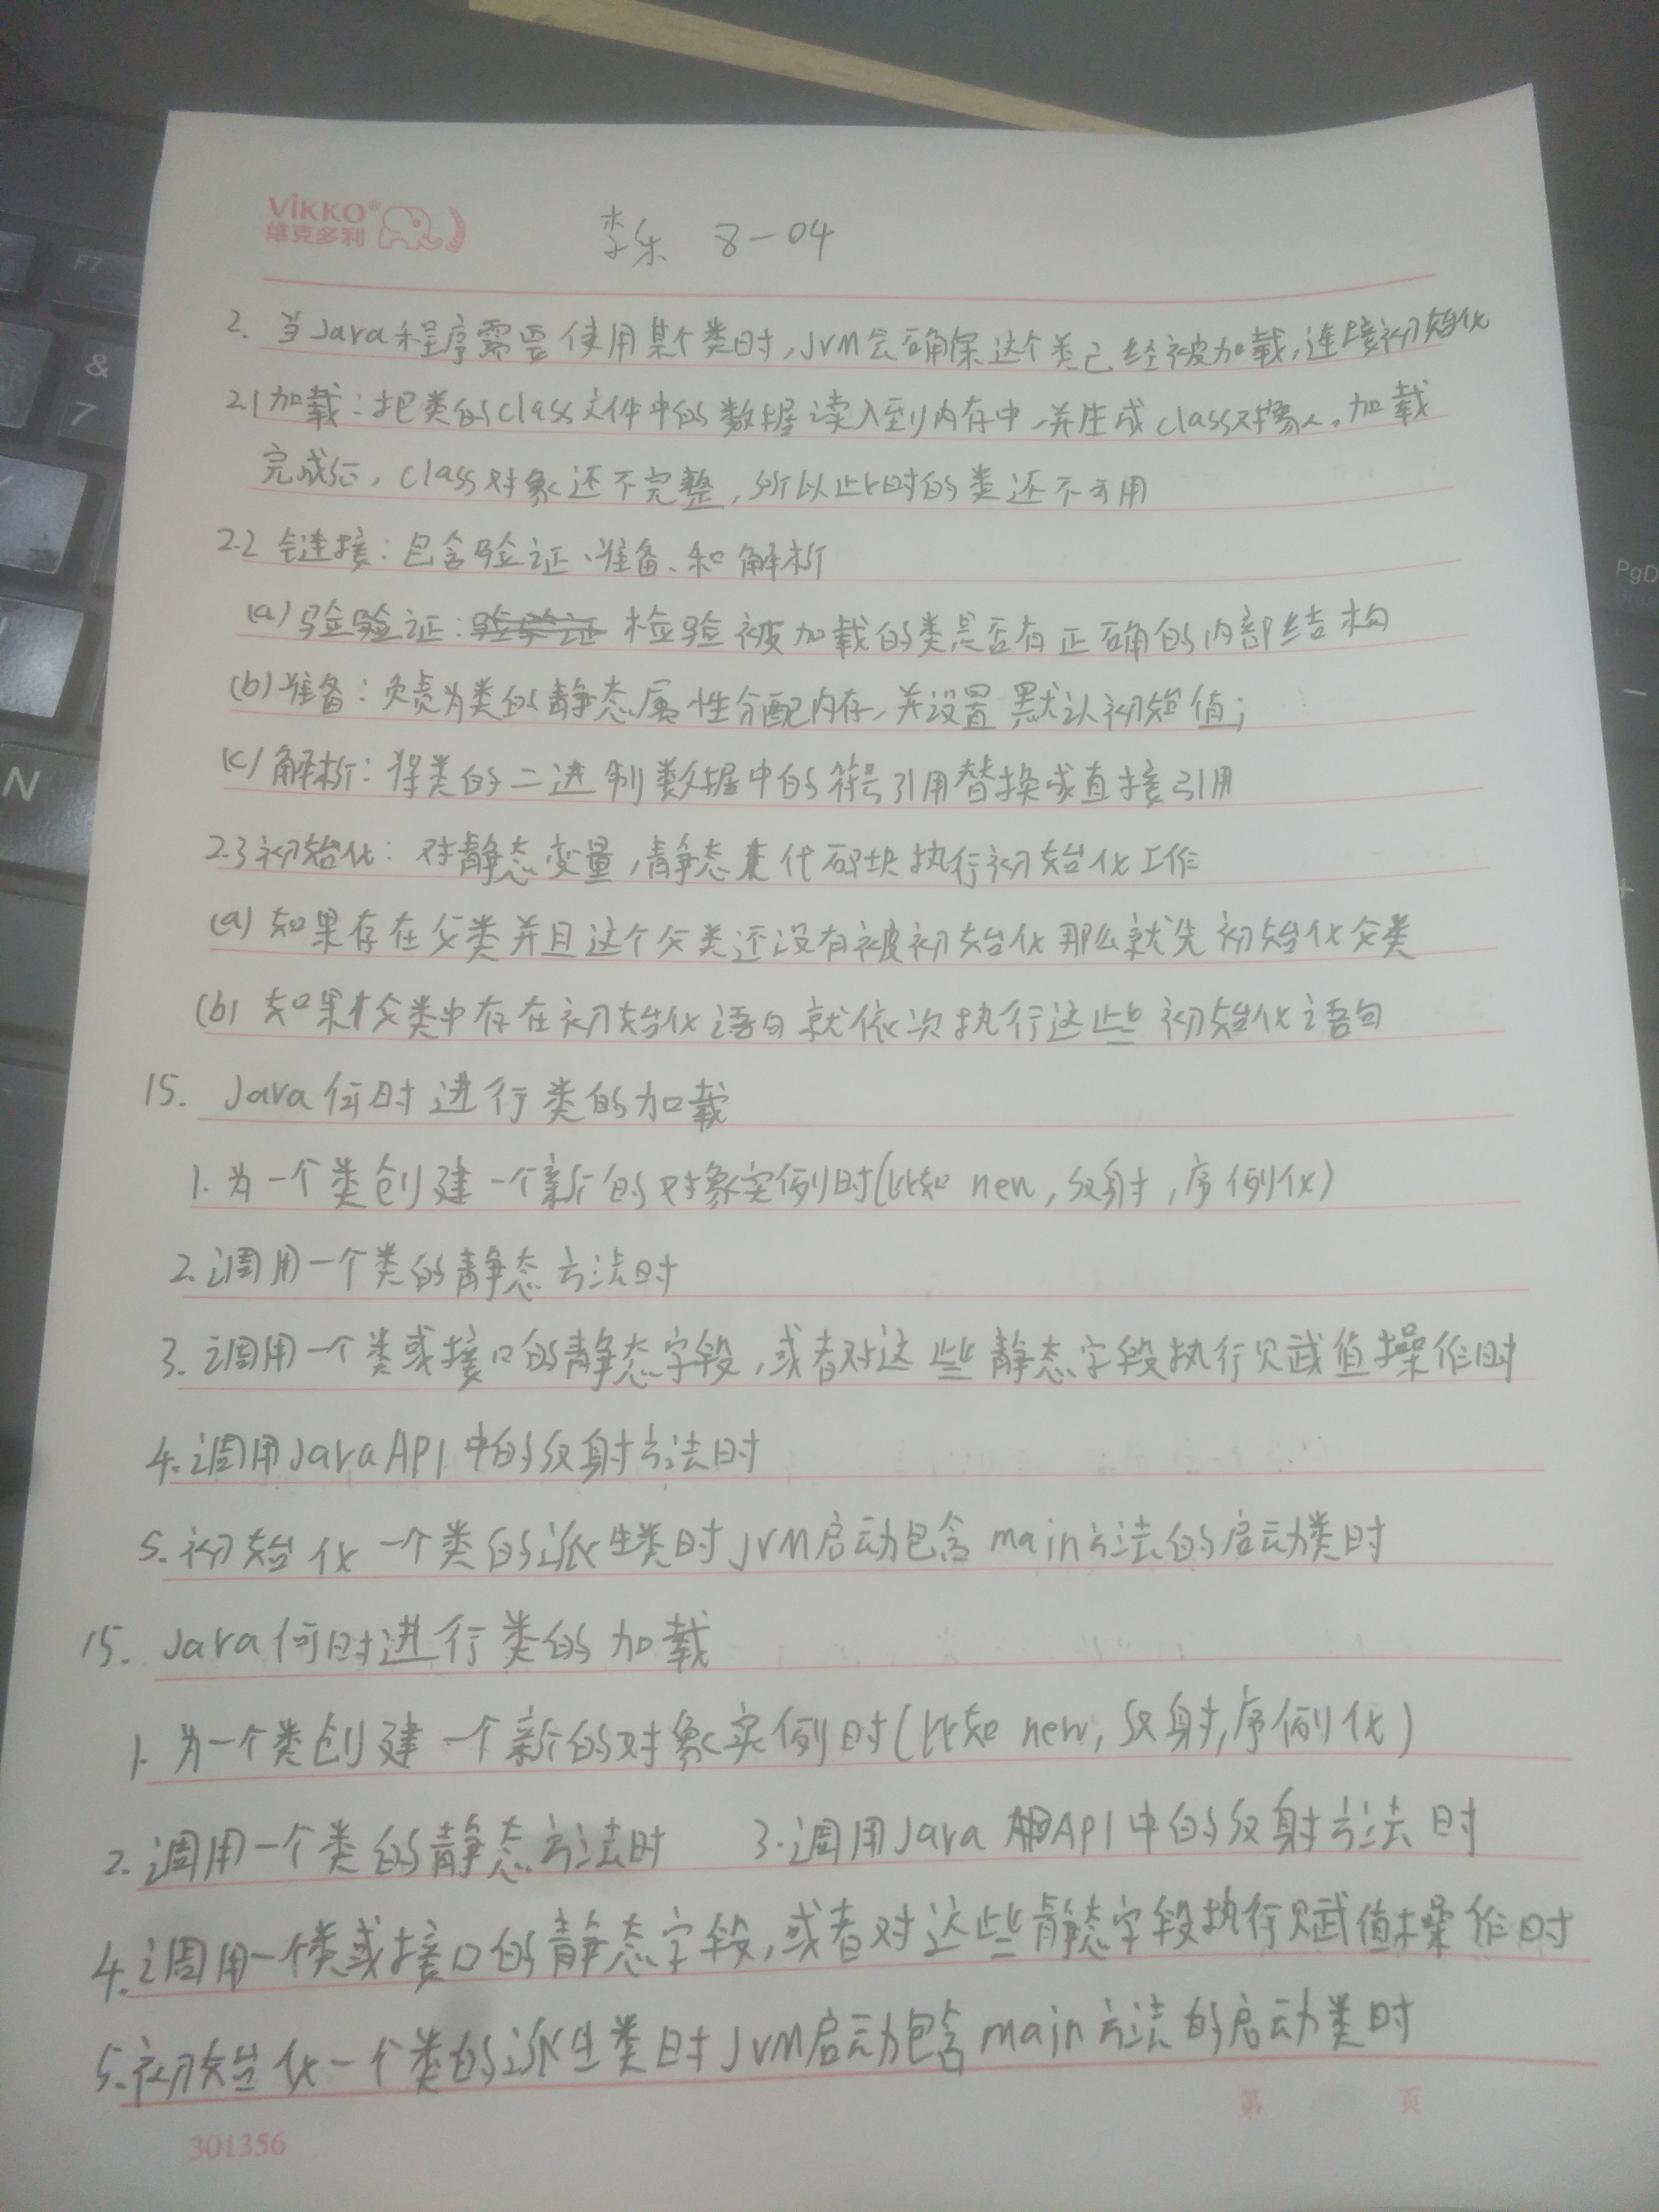 VIKKO®
维克多利
李乐 8-04
2. 当Java程序需要使用某个类时,JVM会确保这个类已经被加载,连接初始化
2.1加载:把类的class文件中的数据读入到内存中,并生成class对象。加载
完成后,class对象还不完整,所以此时的类还不可用
2.2 链接:包含验证、准备、和解析
(a)验证:检验被加载的类是否有正确的内部结构
(b)准备:负责为类的静态属性分配内存,并设置默认初始值;
(c)解析:将类的二进制数据中的符号引用替换成直接引用
2.3初始化:对静态变量,静态代码块执行初始化工作
(a)如果存在父类并且这个父类还没有被初始化那么就先初始化父类
(b)如果父类中存在初始化语句就依次执行这些初始化语句
15. Java何时进行类的加载
1.为一个类创建一个新的对象实例时(比如new,反射,序例化)
2.调用一个类的静态方法时
3.调用一个类或接口的静态字段,或者对这些静态字段执行赋值操作时
4.调用JavaAPI中的反射方法时
5.初始化一个类的派生类时JVM启动包含main方法的启动类时
15. Java何时进行类的加载
1.为一个类创建一个新的对象实例时(比如new,反射,序例化)
2.调用一个类的静态方法时 3.调用Java API中的反射方法时
4.调用一个类或接口的静态字段,或者对这些静态字段执行赋值操作时
5.初始化一个类的派生类时JVM启动包含main方法的启动类时
第 页
301356
F7
&
7
N
PgD